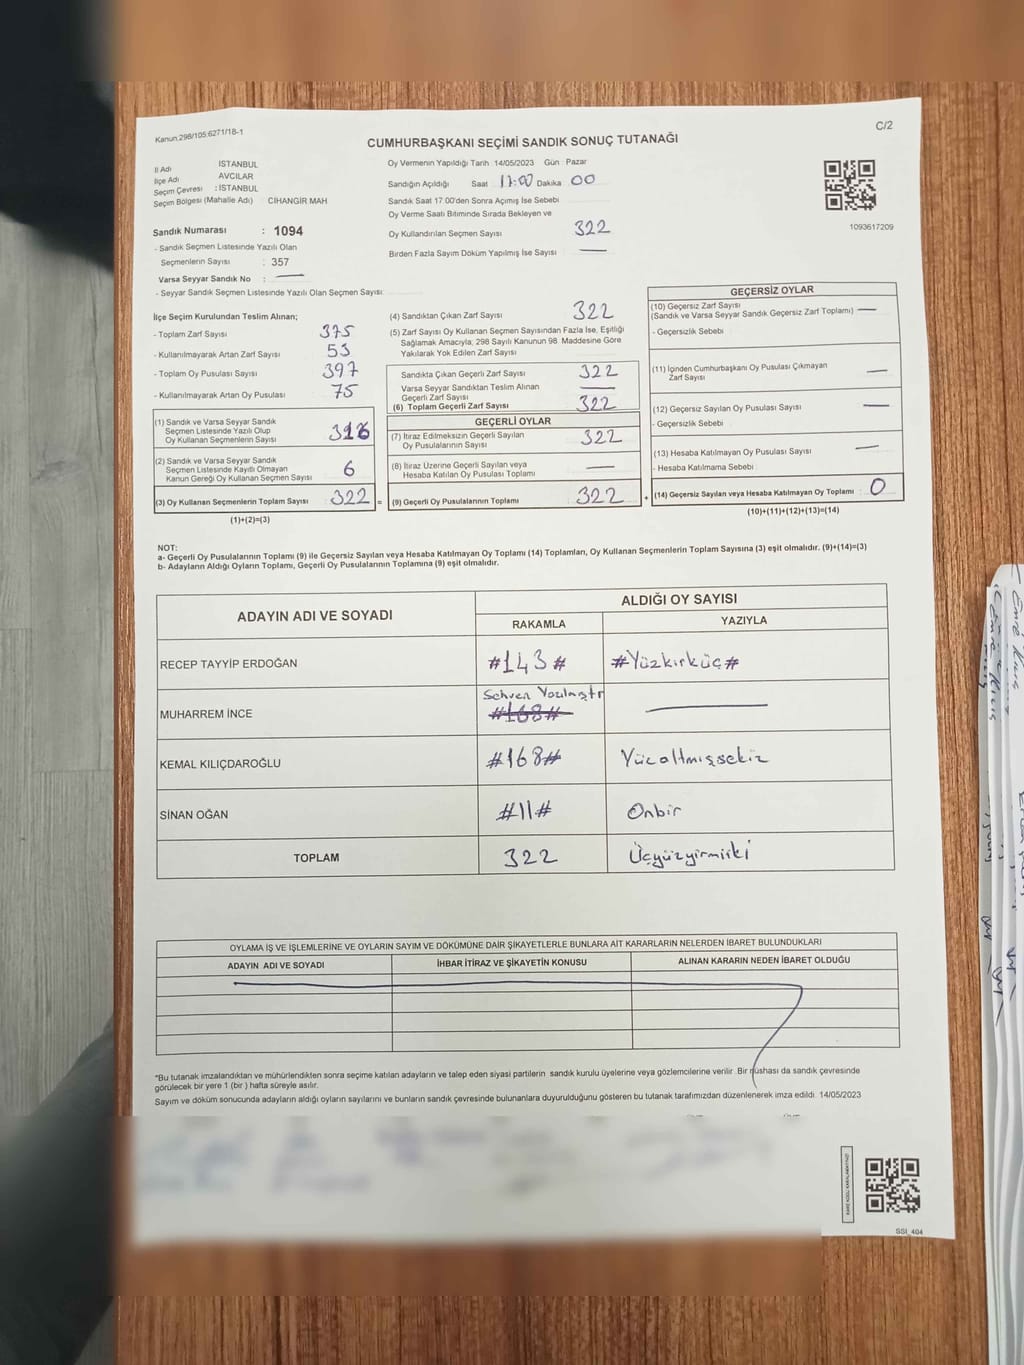 Kanun.298/105:6271/18-1
C/2
CUMHURBAŞKANI SEÇİMİ SANDIK SONUÇ TUTANAĞI
İl Adı İSTANBUL
İlçe Adı AVCILAR
Seçim Çevresi : İSTANBUL
Seçim Bölgesi (Mahalle Adı) CİHANGİR MAH
Sandık Numarası : 1094
- Sandık Seçmen Listesinde Yazılı Olan
Seçmenlerin Sayısı : 357
Varsa Seyyar Sandık No :
- Seyyar Sandık Seçmen Listesinde Yazılı Olan Seçmen Sayısı:
Oy Vermenin Yapıldığı Tarih 14/05/2023 Gün : Pazar
Sandığın Açıldığı Saat 17:00 Dakika 00
Sandık Saat 17:00'den Sonra Açımış İse Sebebi
Oy Verme Saati Bitiminde Sırada Bekleyen ve
Oy Kullandırılan Seçmen Sayısı 322
Birden Fazla Sayım Döküm Yapılmış İse Sayısı
1093617209
İlçe Seçim Kurulundan Teslim Alınan;
- Toplam Zarf Sayısı 375
- Kullanılmayarak Artan Zarf Sayısı 53
- Toplam Oy Pusulası Sayısı 397
- Kullanılmayarak Artan Oy Pusulası 75
(1) Sandık ve Varsa Seyyar Sandık
Seçmen Listesinde Yazılı Olup
Oy Kullanan Seçmenlerin Sayısı 316
(2) Sandık ve Varsa Seyyar Sandık
Seçmen Listesinde Kayıtlı Olmayan
Kanun Gereği Oy Kullanan Seçmen Sayısı 6
(3) Oy Kullanan Seçmenlerin Toplam Sayısı 322 =
(1)+(2)=(3)
(4) Sandıktan Çıkan Zarf Sayısı 322
(5) Zarf Sayısı Oy Kullanan Seçmen Sayısından Fazla İse, Eşitliği
Sağlamak Amacıyla; 298 Sayılı Kanunun 98. Maddesine Göre
Yakılarak Yok Edilen Zarf Sayısı
Sandıkta Çıkan Geçerli Zarf Sayısı 322
Varsa Seyyar Sandıktan Teslim Alınan
Geçerli Zarf Sayısı
(6) Toplam Geçerli Zarf Sayısı 322
GEÇERLİ OYLAR
(7) İtiraz Edilmeksizin Geçerli Sayılan
Oy Pusulalarının Sayısı 322
(8) İtiraz Üzerine Geçerli Sayılan veya
Hesaba Katılan Oy Pusulası Toplamı
(9) Geçerli Oy Pusulalarının Toplamı 322 +
GEÇERSİZ OYLAR
(10) Geçersiz Zarf Sayısı
(Sandık ve Varsa Seyyar Sandık Geçersiz Zarf Toplamı)
- Geçersizlik Sebebi
(11) İçinden Cumhurbaşkanı Oy Pusulası Çıkmayan
Zarf Sayısı
(12) Geçersiz Sayılan Oy Pusulası Sayısı
- Geçersizlik Sebebi
(13) Hesaba Katılmayan Oy Pusulası Sayısı
- Hesaba Katılmama Sebebi
(14) Geçersiz Sayılan veya Hesaba Katılmayan Oy Toplamı : 0
(10)+(11)+(12)+(13)=(14)
NOT:
a- Geçerli Oy Pusulalarının Toplamı (9) ile Geçersiz Sayılan veya Hesaba Katılmayan Oy Toplamı (14) Toplamları, Oy Kullanan Seçmenlerin Toplam Sayısına (3) eşit olmalıdır. (9)+(14)=(3)
b- Adayların Aldığı Oyların Toplamı, Geçerli Oy Pusulalarının Toplamına (9) eşit olmalıdır.
ADAYIN ADI VE SOYADI
ALDIĞI OY SAYISI
RAKAMLA YAZIYLA
RECEP TAYYİP ERDOĞAN #143# #Yüzkırküç#
Sehven Yazılmıştır
MUHARREM İNCE #168#
KEMAL KILIÇDAROĞLU #168# Yüzaltmışsekiz
SİNAN OĞAN #11# Onbir
TOPLAM 322 Üçyüzyirmiiki
OYLAMA İŞ VE İŞLEMLERİNE VE OYLARIN SAYIM VE DÖKÜMÜNE DAİR ŞİKAYETLERLE BUNLARA AİT KARARLARIN NELERDEN İBARET BULUNDUKLARI
ADAYIN ADI VE SOYADI İHBAR İTİRAZ VE ŞİKAYETİN KONUSU ALINAN KARARIN NEDEN İBARET OLDUĞU
*Bu tutanak imzalandıktan ve mühürlendikten sonra seçime katılan adayların ve talep eden siyasi partilerin sandık kurulu üyelerine veya gözlemcilerine verilir. Bir nüshası da sandık çevresinde
görülecek bir yere 1 (bir) hafta süreyle asılır.
Sayım ve döküm sonucunda adayların aldığı oyların sayılarını ve bunların sandık çevresinde bulunanlara duyurulduğunu gösteren bu tutanak tarafımızdan düzenlenerek imza edildi. 14/05/2023
SSİ_404